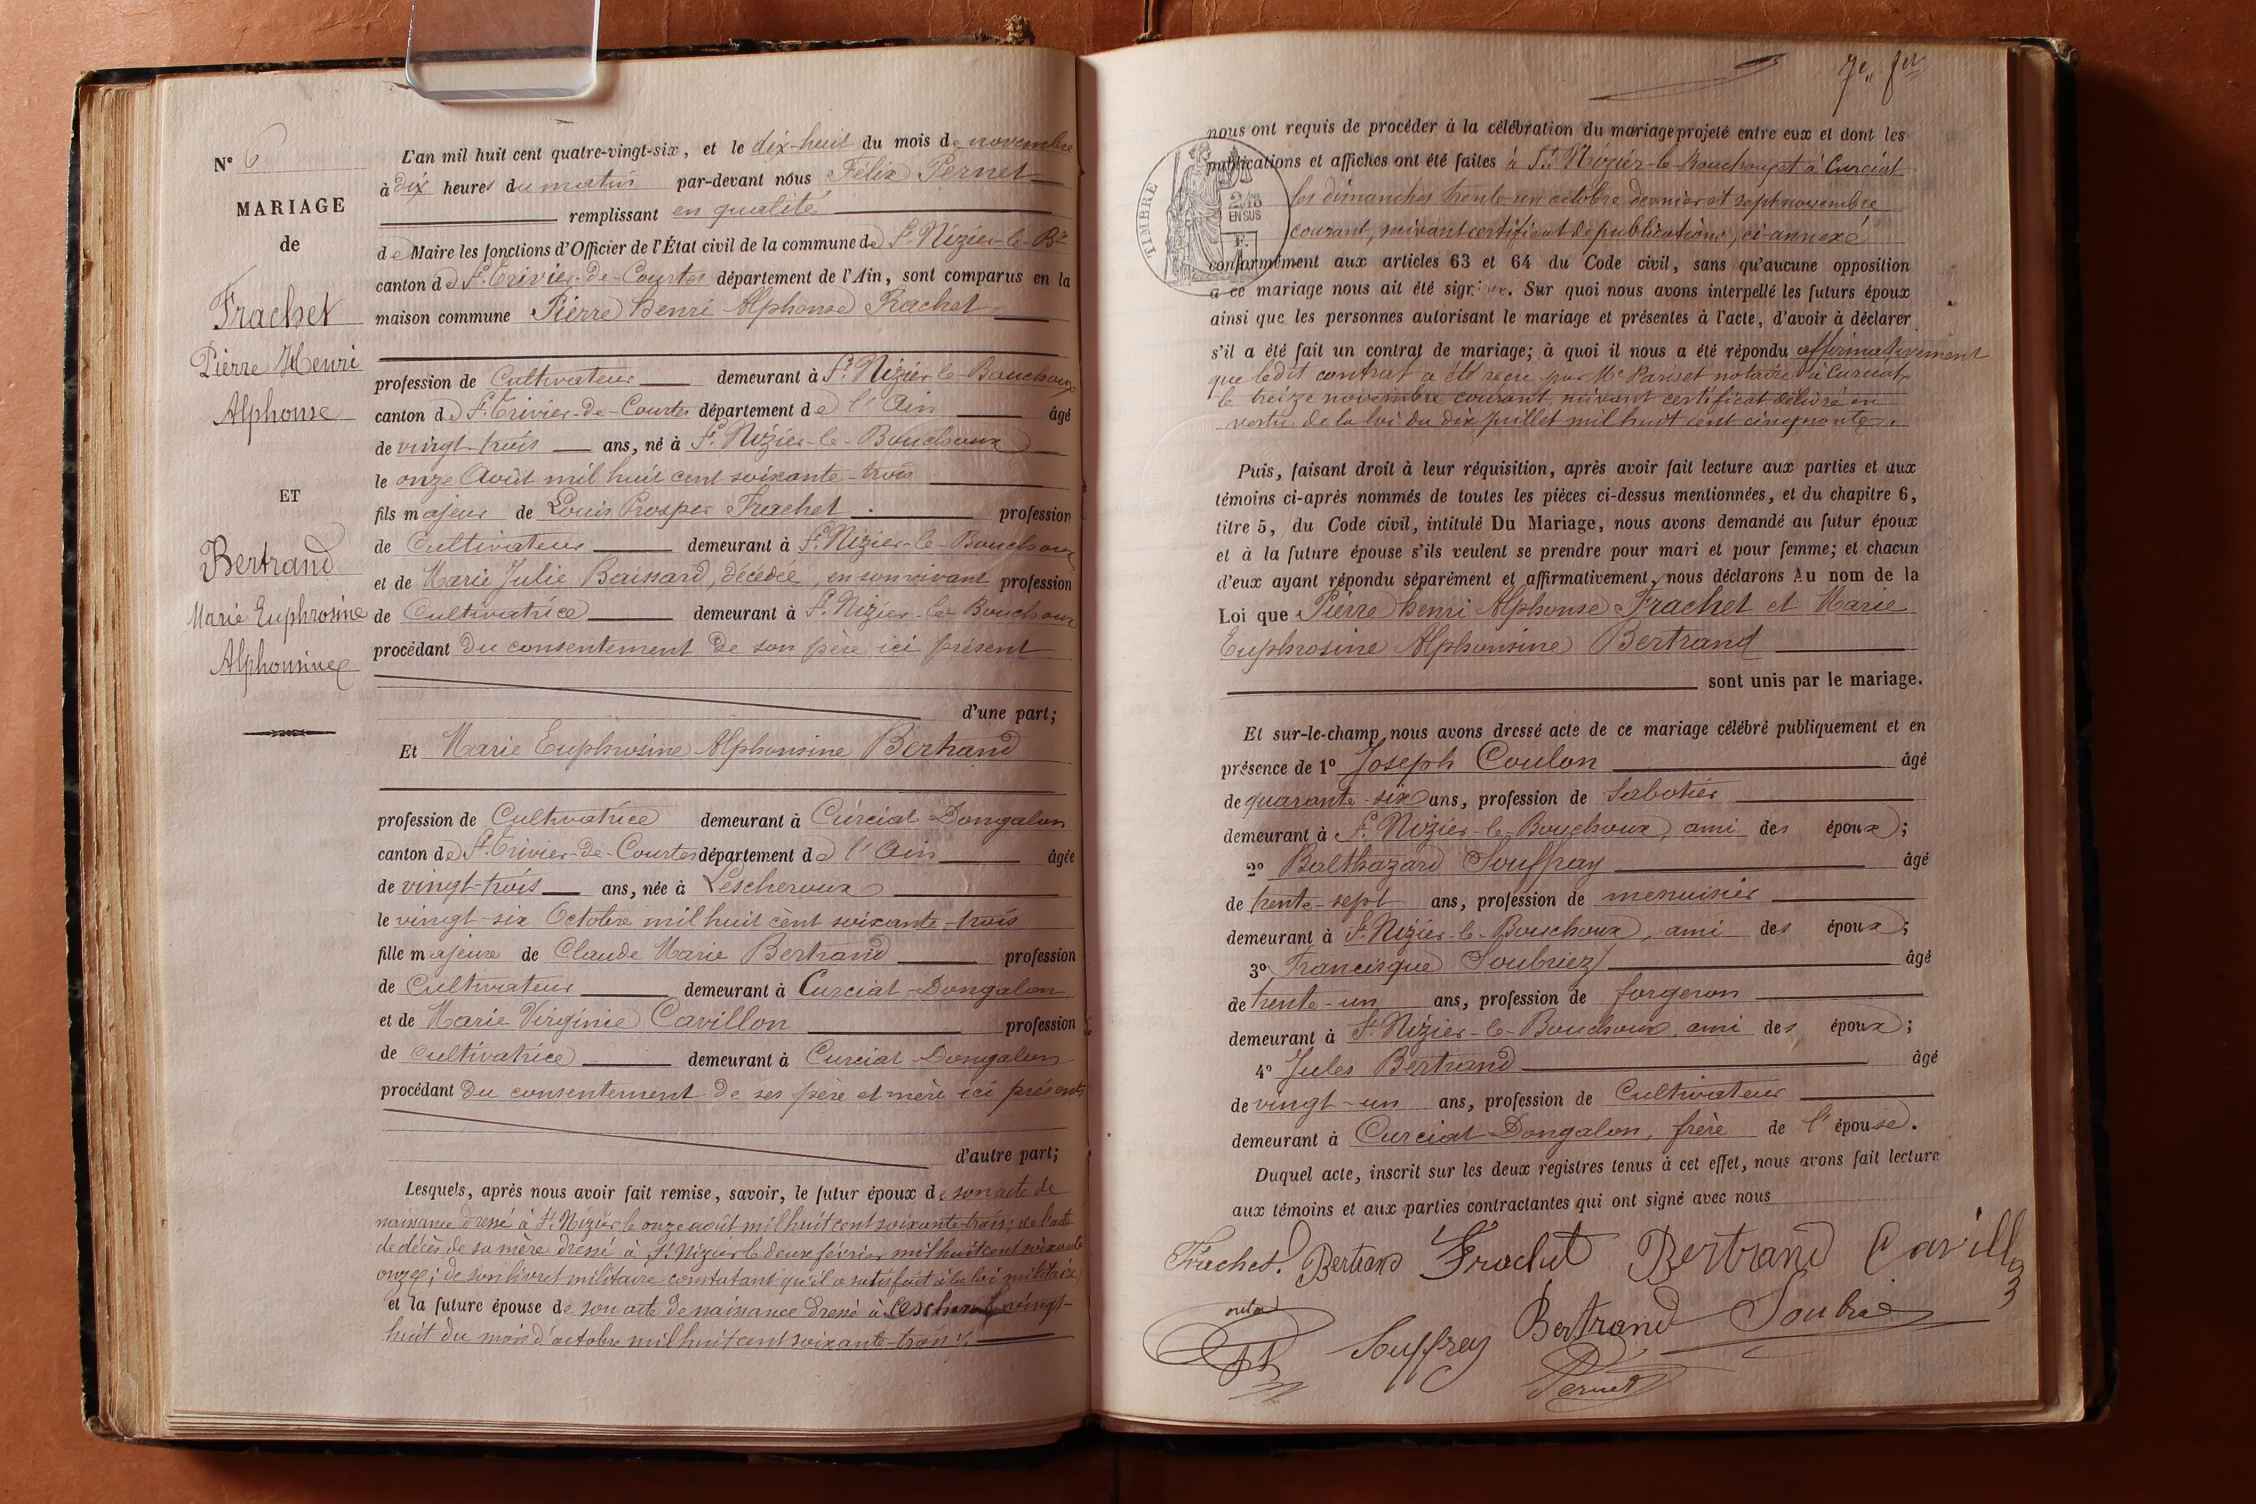 N° 6
MARIAGE
de
Frachet
Pierre Henri
Alphonse
ET
Bertrand
Marie Euphrosine
Alphonsine
L'an mil huit cent quatre-vingt-six, et le dix-huit du mois de novembre
à dix heures du matin par-devant nous Félix Pernet
remplissant en qualité
de Maire les fonctions d'Officier de l'État civil de la commune de St Nizier-le-Bx
canton de St Trivier-de-Courtes département de l'Ain, sont comparus en la
maison commune Pierre henri Alphonse Frachet
profession de Cultivateur demeurant à St Nizier-le-Bouchoux
canton de St Trivier-de-Courtes département de l'Ain âgé
de vingt-trois ans, né à St Nizier-le-Bouchoux
le onze Août mil huit cent soixante-trois
fils majeur de Louis Prosper Frachet profession
de Cultivateur demeurant à St Nizier-le-Bouchoux
et de Marie Julie Baissard, décédée, en son vivant profession
de Cultivatrice demeurant à St Nizier-le-Bouchoux
procédant du consentement de son père ici présent
d'une part;
Et Marie Euphrosine Alphonsine Bertrand
profession de Cultivatrice demeurant à Curciat-Dongalon
canton de St Trivier-de-Courtes département de l'Ain âgée
de vingt-trois ans, née à Lescheroux
le vingt-six Octobre mil huit cent soixante-trois
fille majeure de Claude Marie Bertrand profession
de Cultivateur demeurant à Curciat-Dongalon
et de Marie Virginie Cavillon profession
de cultivatrice demeurant à Curciat-Dongalon
procédant du consentement de ses père et mère ici présents
d'autre part;
Lesquels, après nous avoir fait remise, savoir, le futur époux de son acte de
naissance dressé à St Nizier le onze août mil huit cent soixante-trois; de l'acte
de décès de sa mère dressé à St Nizier le deux février mil huit cent soixante
onze; de son livret militaire constatant qu'il a satisfait à la loi militaire
et la future épouse de son acte de naissance dressé à Lescheroux vingt-
huit du mois d'octobre mil huit cent soixante-trois;
7e fet
TIMBRE
2/10
EN SUS
F.
nous ont requis de procéder à la célébration du mariage projeté entre eux et dont les
publications et affiches ont été faites à St Nizier-le-Bouchoux et à Curciat
les dimanches trente un octobre dernier et sept novembre
courant, suivant certificat de publications, ci-annexé
conformément aux articles 63 et 64 du Code civil, sans qu'aucune opposition
à ce mariage nous ait été signifiée. Sur quoi nous avons interpellé les futurs époux
ainsi que les personnes autorisant le mariage et présentes à l'acte, d'avoir à déclarer
s'il a été fait un contrat de mariage; à quoi il nous a été répondu affirmativement
que ledit contrat a été reçu par Me Panset notaire à Curciat
le treize novembre courant, suivant certificat délivré en
vertu de la loi du dix juillet mil huit cent cinquante.
Puis, faisant droit à leur réquisition, après avoir fait lecture aux parties et aux
témoins ci-après nommés de toutes les pièces ci-dessus mentionnées, et du chapitre 6,
titre 5, du Code civil, intitulé Du Mariage, nous avons demandé au futur époux
et à la future épouse s'ils veulent se prendre pour mari et pour femme; et chacun
d'eux ayant répondu séparément et affirmativement, nous déclarons Au nom de la
Loi que Pierre henri Alphonse Frachet et Marie
Euphrosine Alphonsine Bertrand
sont unis par le mariage.
Et sur-le-champ nous avons dressé acte de ce mariage célébré publiquement et en
présence de 1° Joseph Coulon âgé
de quarante-six ans, profession de Sabotier
demeurant à St Nizier-le-Bouchoux, ami des époux;
2° Balthazard Souffray âgé
de trente-sept ans, profession de menuisier
demeurant à St Nizier-le-Bouchoux, ami des époux;
3° Francisque Soubriez âgé
de trente-un ans, profession de forgeron
demeurant à St Nizier-le-Bouchoux, ami des époux;
4° Jules Bertrand âgé
de vingt-un ans, profession de Cultivateur
demeurant à Curciat-Dongalon, frère de l'épouse.
Duquel acte, inscrit sur les deux registres tenus à cet effet, nous avons fait lecture
aux témoins et aux parties contractantes qui ont signé avec nous
Frachet. Bertrand Frachet Bertrand Cavillon
Souffray Bertrand Soubrié
Pernet